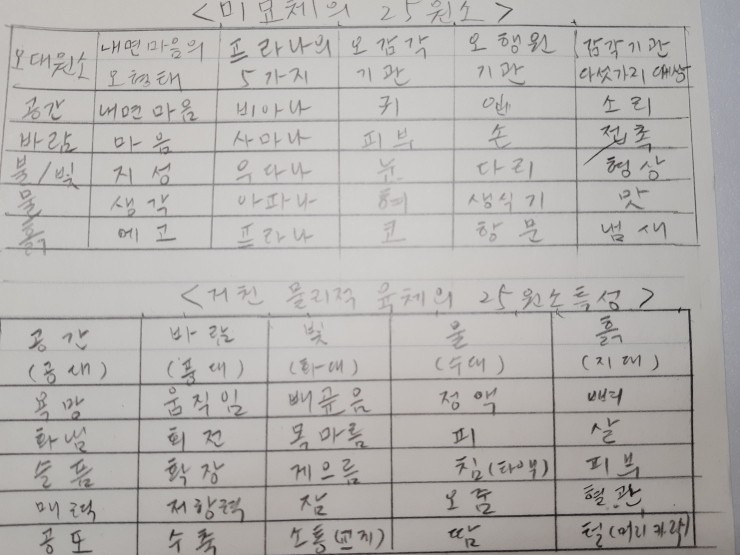 <미묘체의 25원소>
오대원소 내면마음의 오형태 프라나의 5가지 오감각 기관 오행원 기관 감각기관 다섯가지 대상
공간 내면마음 비아나 귀 입 소리
바람 마음 사마나 피부 손 접촉
불/빛 지성 우다나 눈 다리 형상
물 생각 아파나 혀 생식기 맛
흙 에고 프라나 코 항문 냄새
<거친 물리적 육체의 25원소특성>
공간 바람 빛 물 흙
(공대) (풍대) (화대) (수대) (지대)
욕망 움직임 배고픔 정액 뼈
화냄 회전 목마름 피 살
슬픔 확장 게으름 침(타액) 피부
매력 저항력 잠 오줌 혈관
공포 수축 소통 땀 털(머리카락)